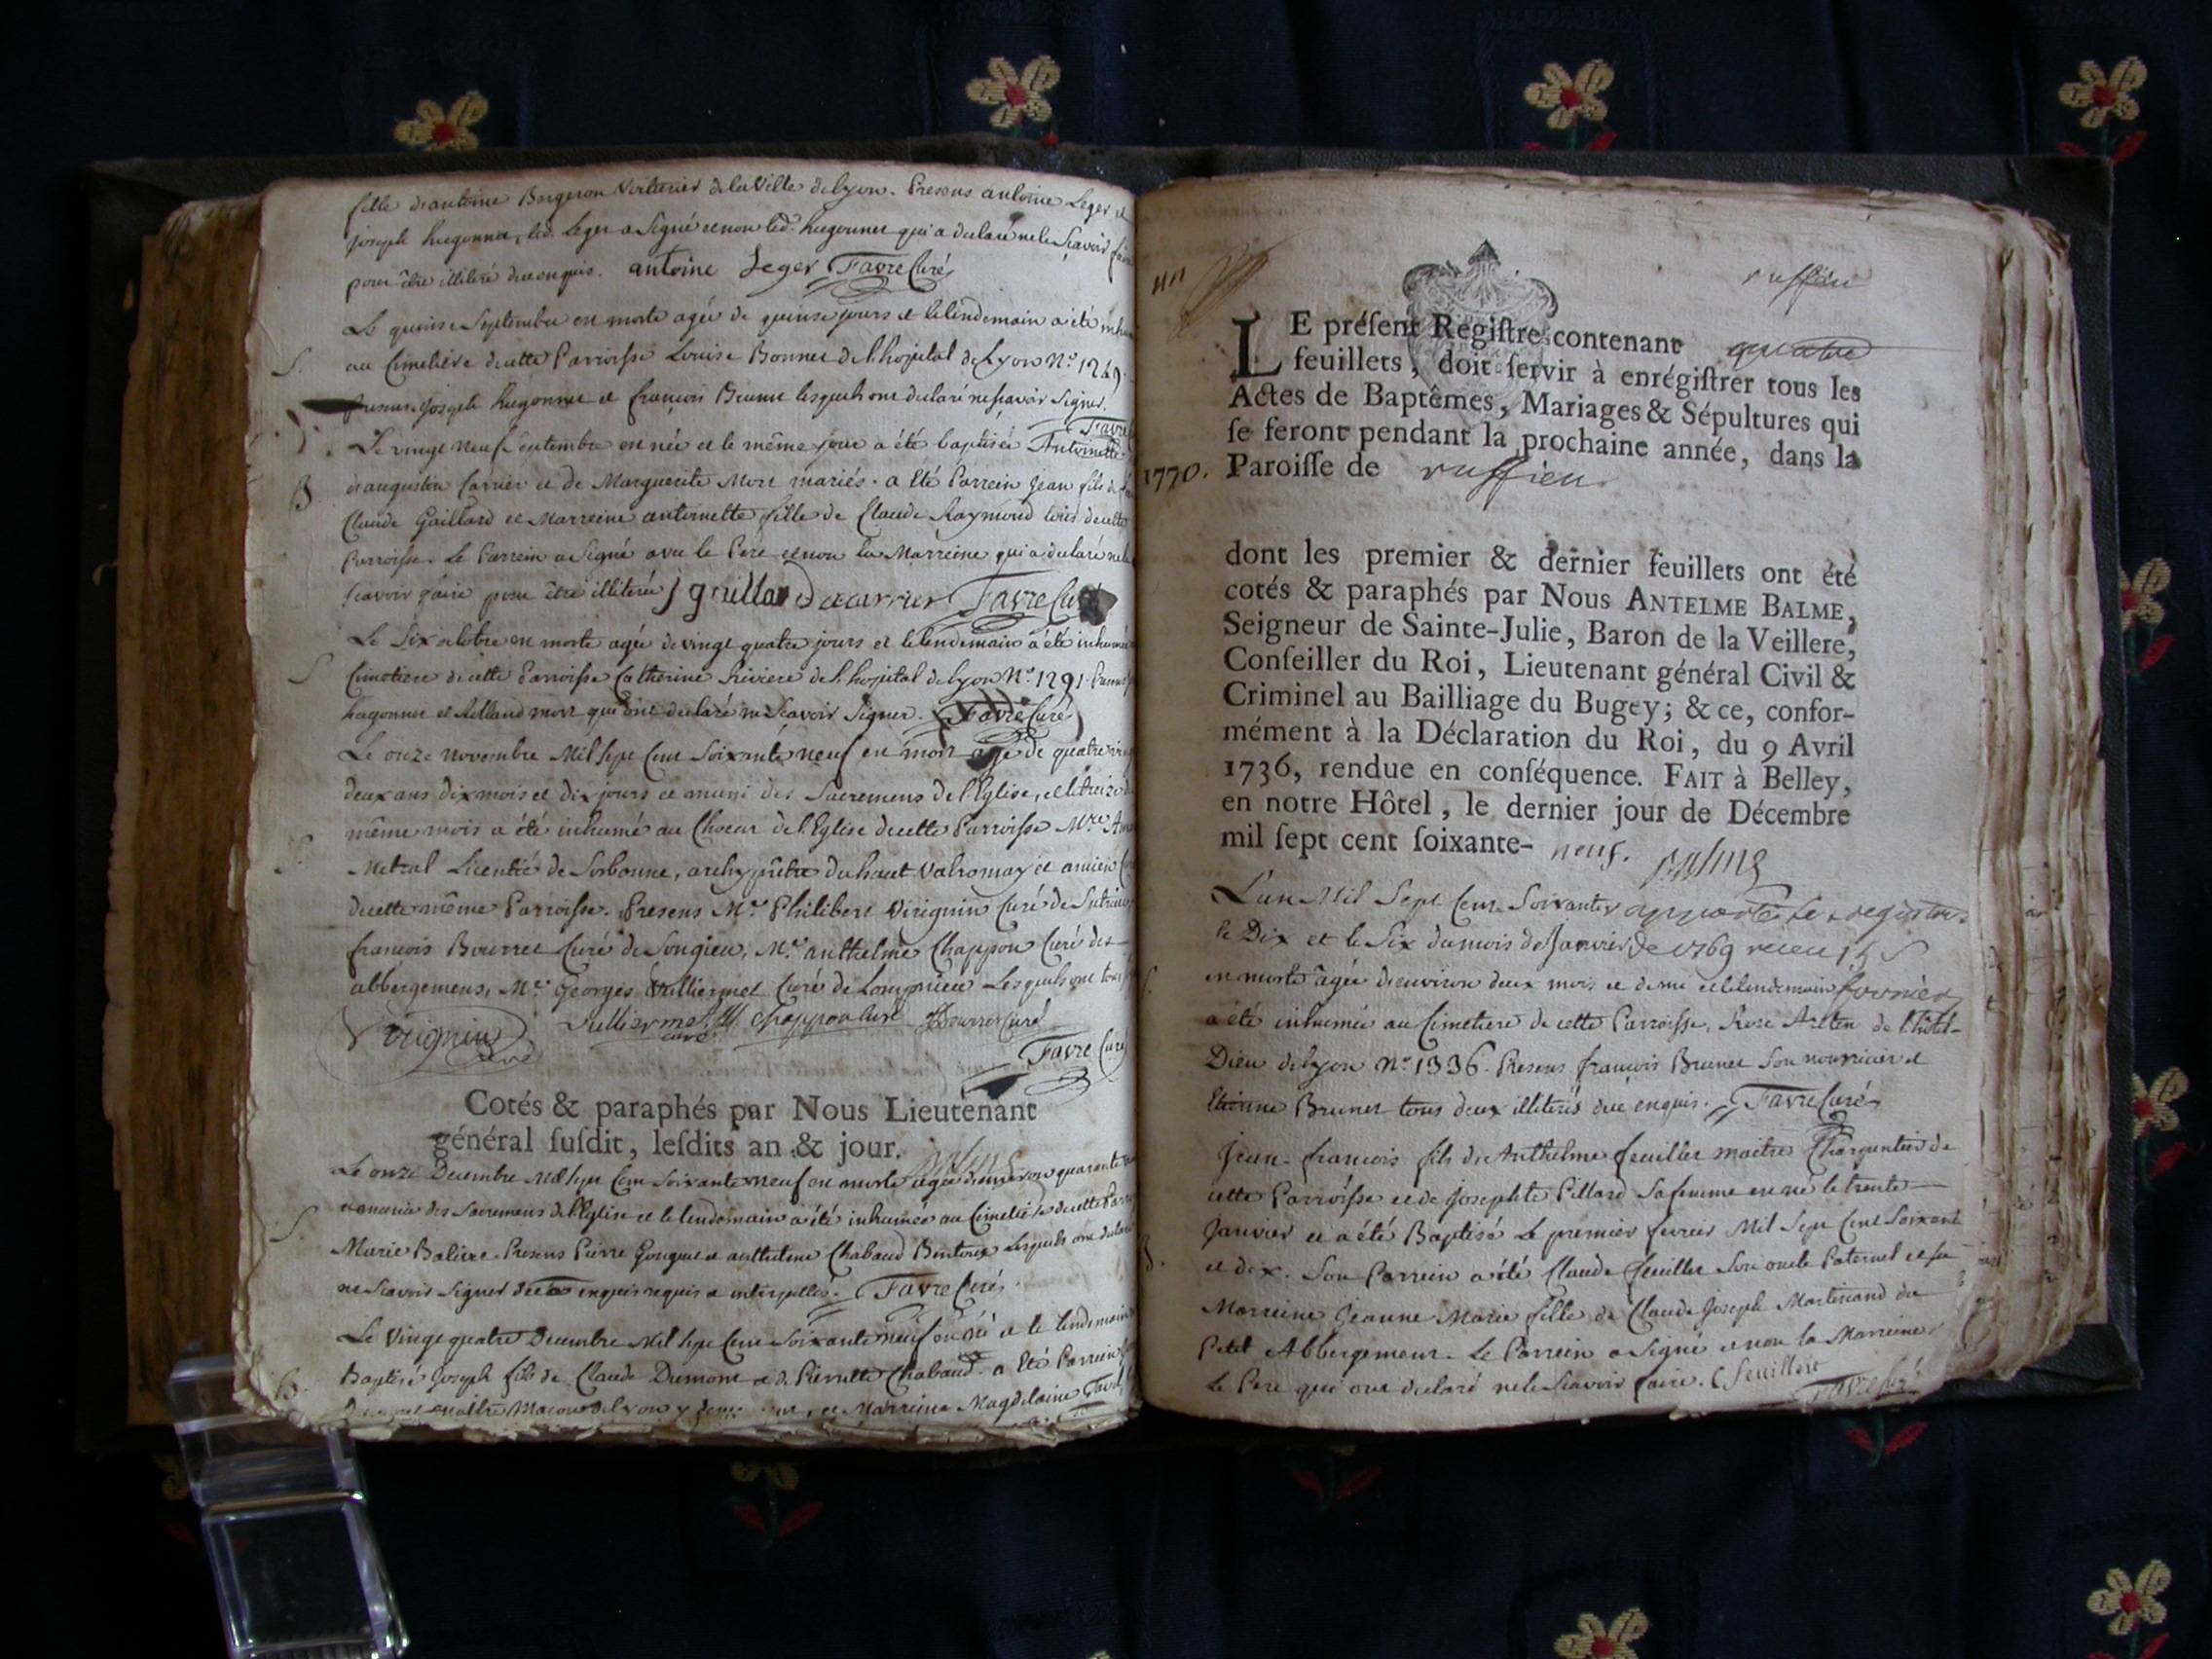 fille d'antoine Bergeron de la Ville de Lyon. Presens antoine Leger et
joseph hugonnet, led. Leger a signé et non led. hugonnet qui a declaré ne le scavoir
pour être illiteré de ce enquis. antoine Leger Favre Curé
Le quinze Septembre est morte agée de quinze jours et le lendemain a été
au Cimetière de cette Parroisse Louise Bonnet de l'hopital de Lyon N.º 1249.
S.
Presens joseph hugonnet et françois Brunet lesquels ont declaré ne scavoir signer.
Favre
Le vingt neuf Septembre est née et le même jour a été baptisée Antoinette
B
d'augustin Carrier et de Marguerite Mort mariés. a Eté Parrein jean fils de
Claude Gaillard et Marreine antoinette fille de Claude Raymond tous de cette
Parroisse. Le Parrein a signé avec le Pere et non la Marreine qui a declaré ne le
scavoir faire pour être illiterée j gaillard a carrier Favre Curé
Le Six octobre est morte agée de vingt quatre jours et le lendemain a été inhumée
S
Cimetiere de cette Parroisse Catherine Riviere de l'hopital de Lyon N.º 1291.
hugonnet et mort qui ont declaré ne Scavoir Signer. Favre Curé
Le onze novembre Mil sept Cent Soixante neuf est mort agé de quatre
deux ans dix mois et dix jours et muni des Sacremens de l'Eglise, et le treize
même mois a été inhumé au Choeur de l'Eglise de cette Parroisse Mre
S.
Metral Licentié de Sorbonne, archyprêtre du haut Valromay et ancien
de cette même Parroisse. Presens Mre Philibert Virignin Curé de
françois Bourret Curé de Songieu, Mre anthelme Chappon Curé des
abbergemens, Mre Georges Vulliermet Curé de Lompnieu Lesquels ont tous
Virignin Curé Vulliermet curé Chappon Curé Bourret Curé
Favre Curé
Cotés & paraphés par Nous Lieutenant
général ſuſdit, leſdits an & jour.
Balme
Le onze Decembre Mil Sept Cent Soixante neuf est morte agée d'environ quarante
et munie des Sacremens de l'Eglise et le lendemain a été inhumée au Cimetière de cette
S.
Marie Balivet. Presens Pierre et anthelme Chabaud Lesquels ont declaré
ne Scavoir Signer de ce enquis requis et interpellés. Favre Curé
Le Vingt quatre Decembre Mil Sept Cent Soixante neuf est né et le lendemain
B.
Baptisé joseph fils de Claude Dumont et de Pierrette Chabaud. a Eté Parrein
maître Maçon de Lyon y et Marreine Magdelaine
ruffieu
LE préſent Regiſtre contenant quatre
feuillets, doit ſervir à enrégiſtrer tous les
Actes de Baptêmes, Mariages & Sépultures qui
ſe feront pendant la prochaine année, dans la
1770. Paroiſſe de ruffieu
dont les premier & dernier feuillets ont été
cotés & paraphés par Nous ANTELME BALME,
Seigneur de Sainte-Julie, Baron de la Veillere,
Conſeiller du Roi, Lieutenant général Civil &
Criminel au Bailliage du Bugey; & ce, confor-
mément à la Déclaration du Roi, du 9 Avril
1736, rendue en conſéquence. FAIT à Belley,
en notre Hôtel, le dernier jour de Décembre
mil ſept cent ſoixante- neuf. Balme
L'an Mil Sept Cent Soixante apporté le registre
et Dix et le Six du mois de Janvier de 1769 receu 15 s
S.
est morte agée d'environ deux mois et demi et le lendemain fornier
a été inhumée au Cimetiere de cette Parroisse, Rose de l'hôtel-
Dieu de Lyon N.º 1336. Presens françois Brunet Son nourricier et
Etienne Brunet tous deux illiterés de ce enquis. Favre Curé
Jean-françois fils d'Anthelme feuillet maitre Charpentier de
cette Parroisse et de josephte Pillard Sa femme est né le trente
Janvier et a été Baptisé Le premier fevrier Mil Sept Cent Soixante
B.
et dix. Son Parrein a été Claude feuillet Son oncle Paternel et sa
Marreine Jeanne Marie fille de Claude joseph Martinand du
Petit Abbergement. Le Parrein a Signé et non la Marreine
Le Pere qui ont declaré ne le Scavoir faire. C feuillet
Favre Curé